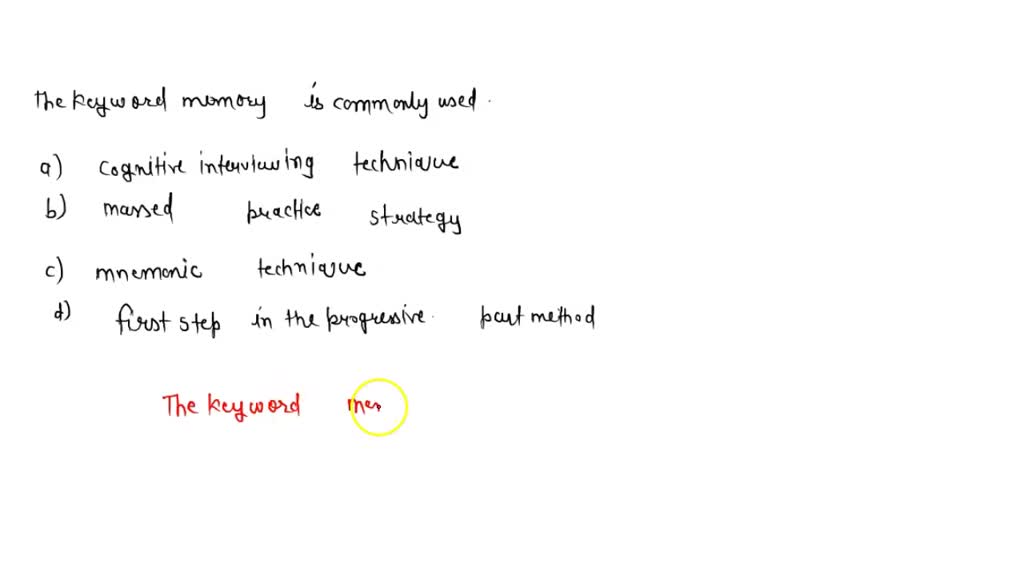 the keyword memory is commonly used.
a) cognitive interviewing technique
b) massed practice strategy
c) mnemonic technique
d) first step in the progressive. part method
The keyword mem